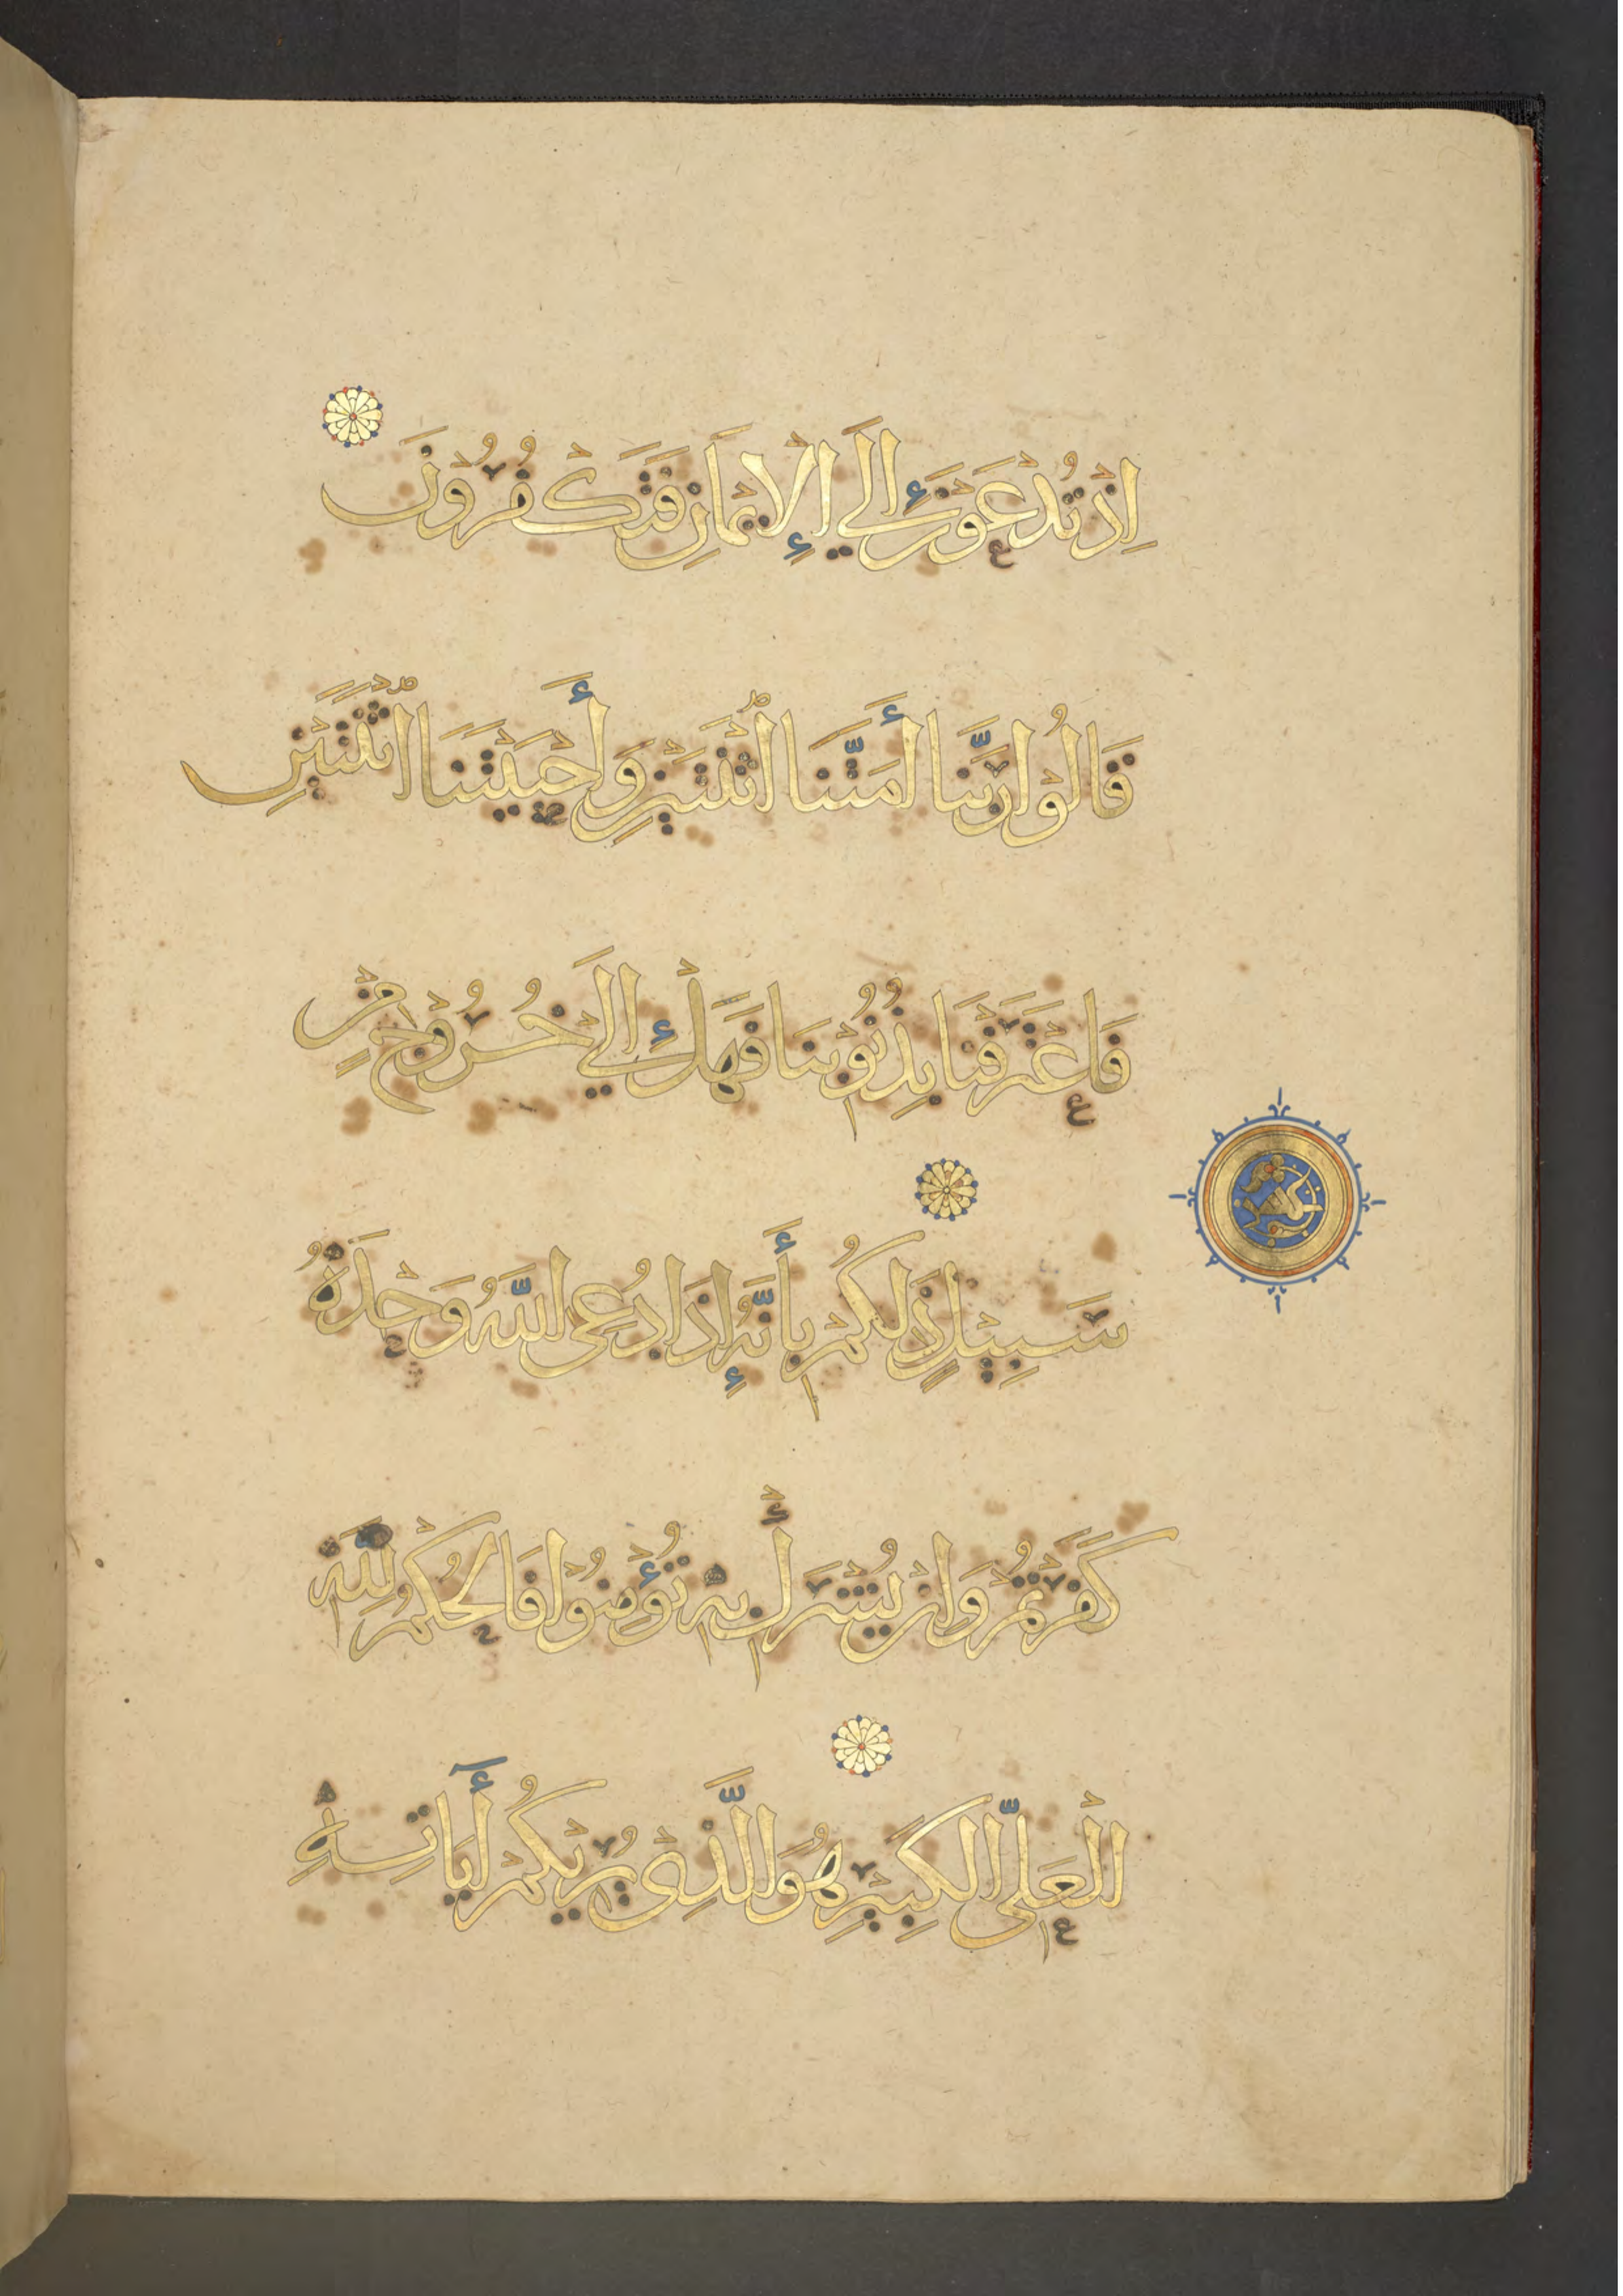 إِذْ تُدْعَوْنَ إِلَى الْإِيمَانِ فَتَكْفُرُونَ
قَالُوْا رَبَّنَا أَمَتَّنَا اثْنَتَيْنِ وَأَحْيَيْتَنَا اثْنَتَيْنِ
فَاعْتَرَفْنَا بِذُنُوْبِنَا فَهَلْ إِلَى خُرُوْجٍ مِنْ
سَبِيْلٍ ذَلِكُمْ بِأَنَّهُ إِذَا دُعِيَ اللَّهُ وَحْدَهُ
كَفَرْتُمْ وَإِنْ يُشْرَكْ بِهِ تُؤْمِنُوْا فَالْحُكْمُ لِلَّهِ
الْعَلِيِّ الْكَبِيْرِ هُوَ الَّذِي يُرِيْكُمْ أٰيَاتِهِ